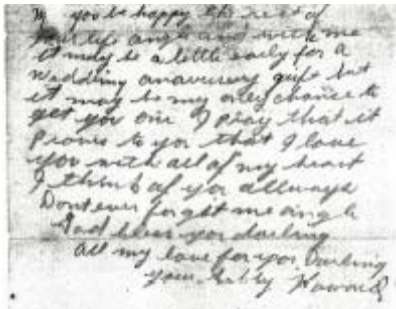 you be happy the rest of
your life angle and with me
it may be a little early for a
wedding anaversery gift but
it may be my only chance to
get you one I pray that it
proves to you that I love
you with all of my heart
I think of you allways
Dont ever forgit me angle
God bless you darling
all my love for you Darling
your hubby Howard